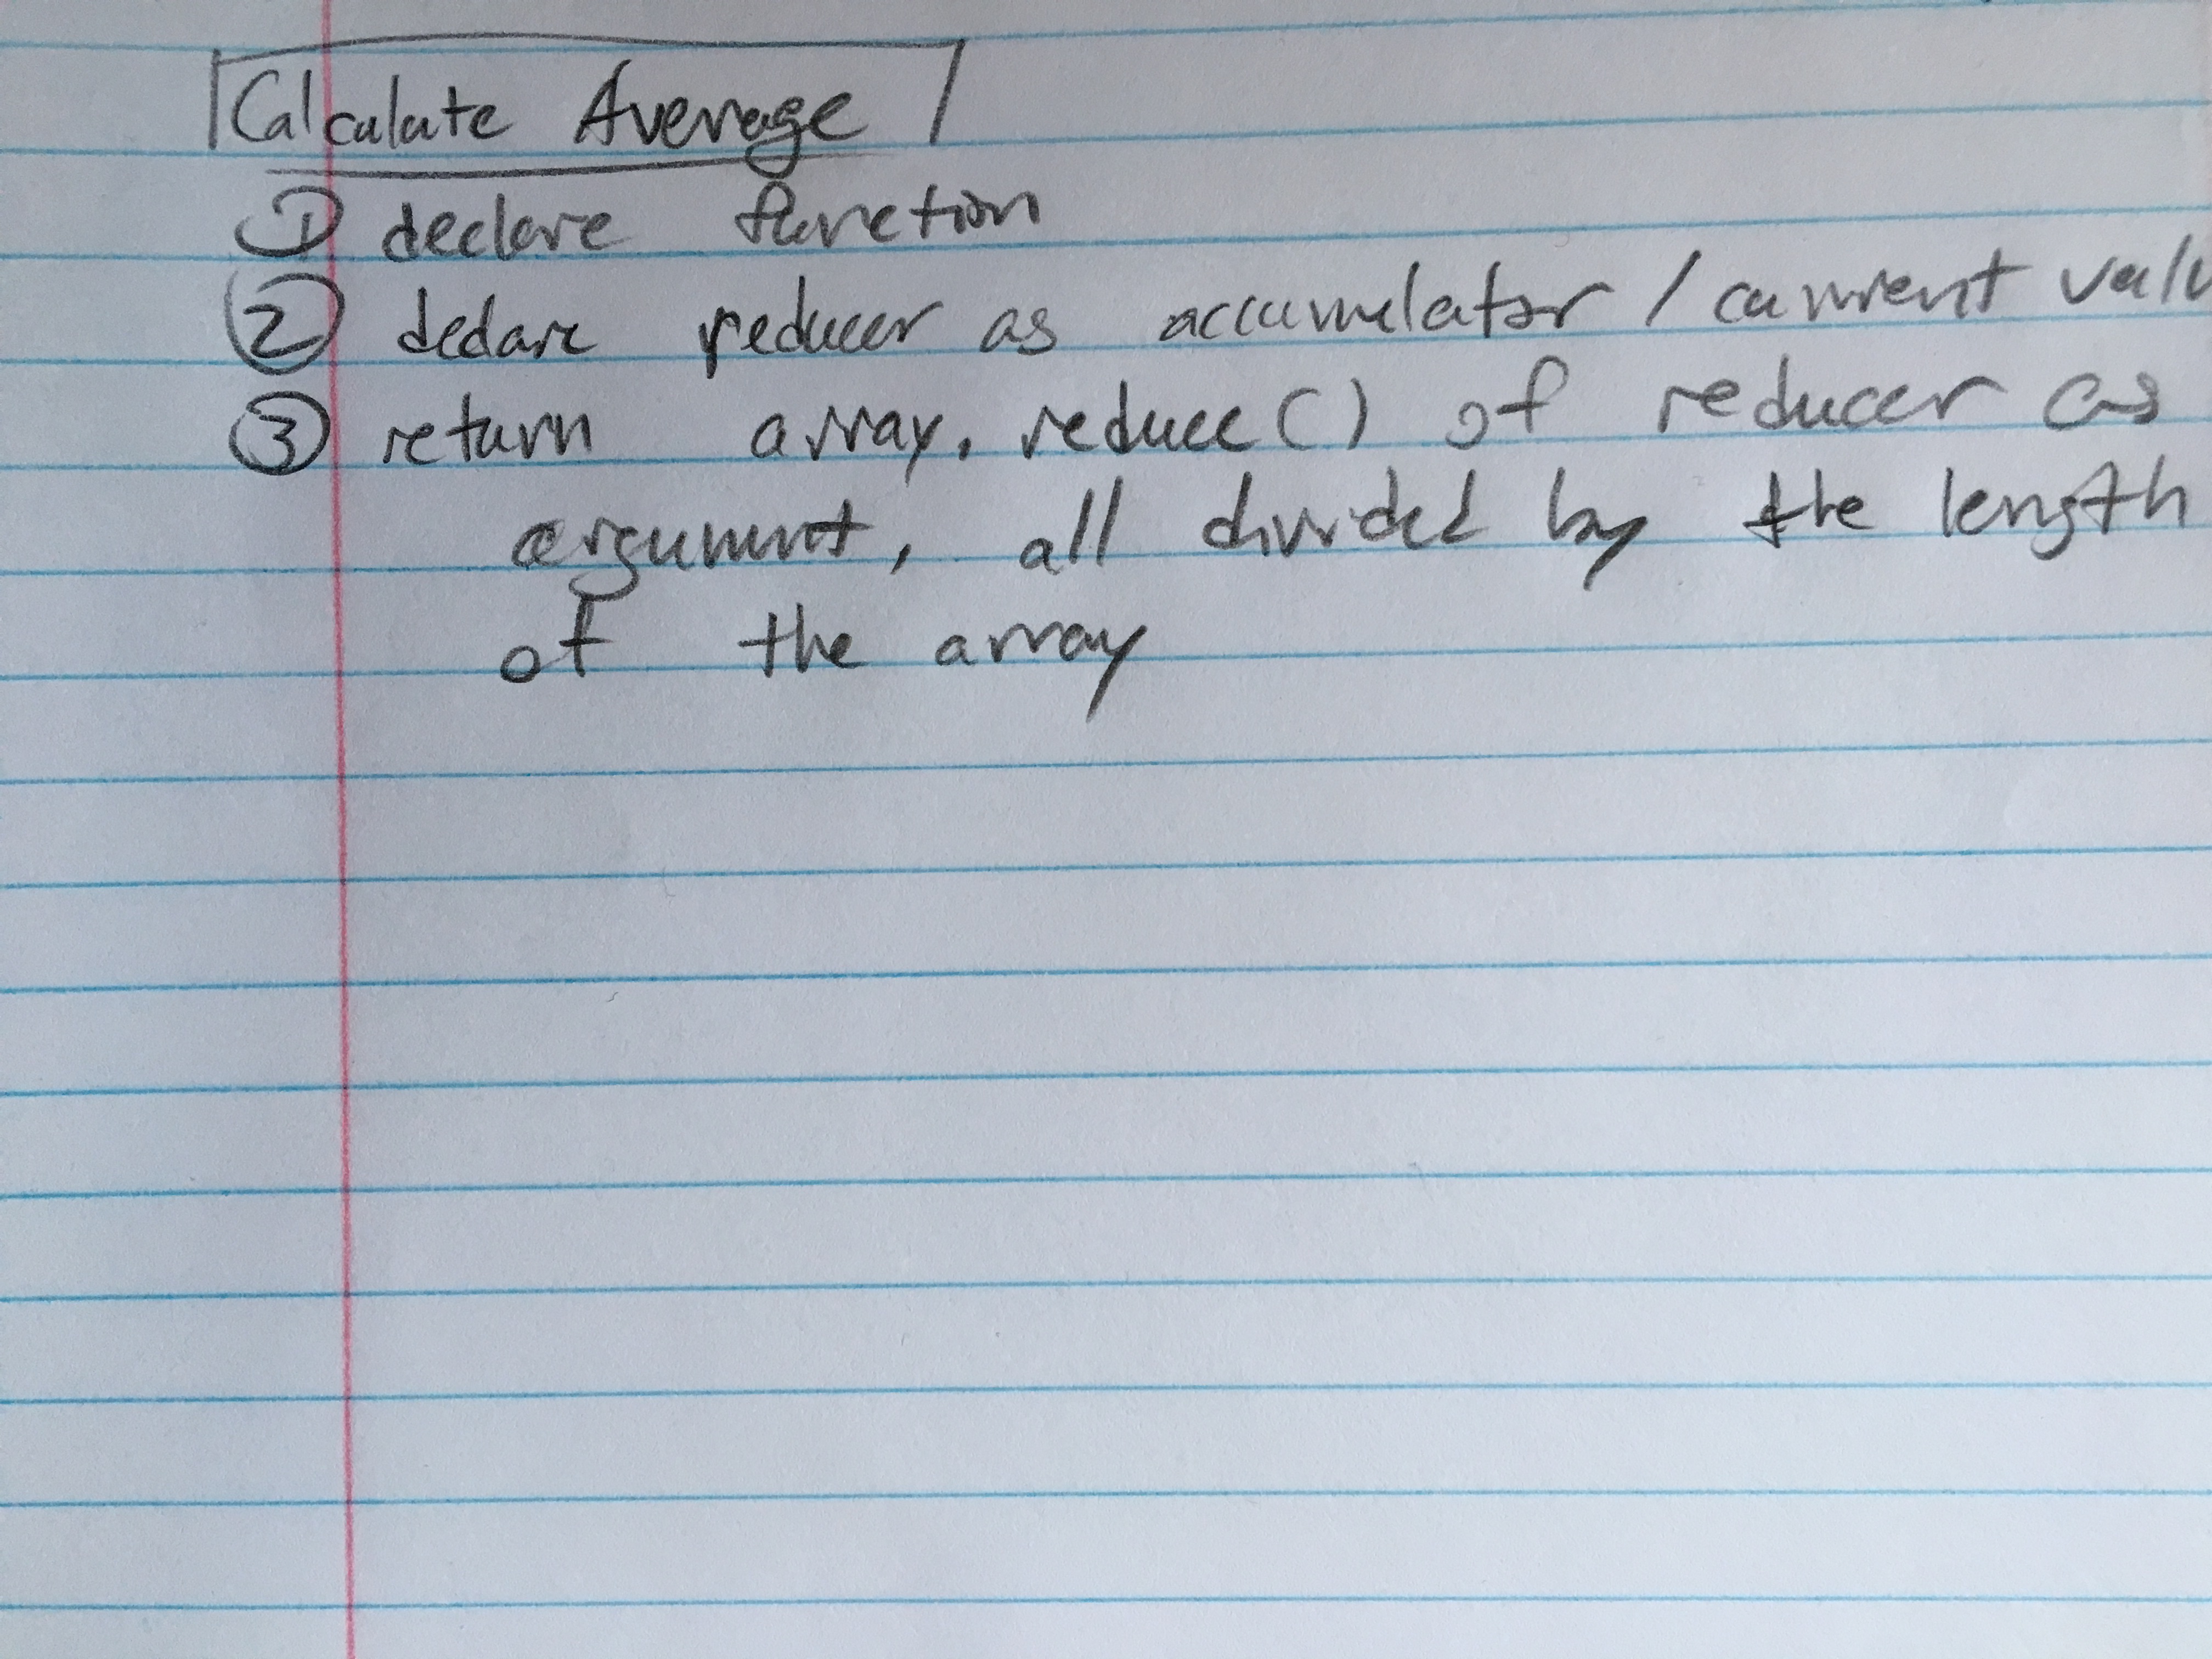 Calculate Average
① declare function
② declare reducer as accumulator / current valu
③ return array.reduce() of reducer as
argument, all divided by the length
of the array